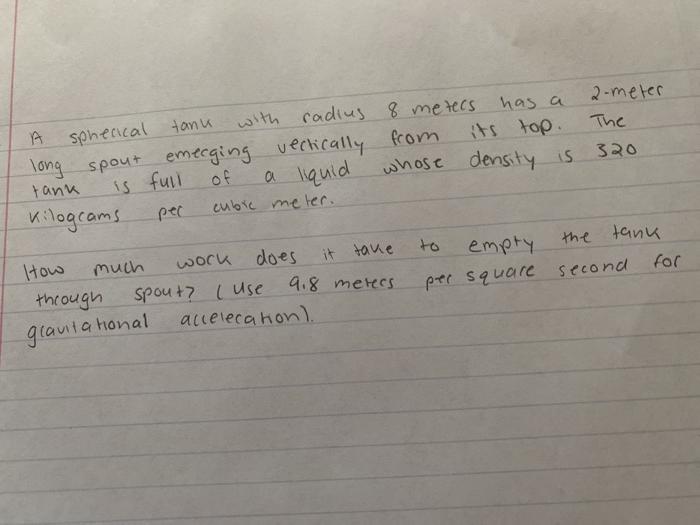 A spherical tank with radius 8 meters has a 2-meter
long spout emerging vertically from its top. The
tank is full of a liquid whose density is 320
kilograms per cubic meter.
How much work does it take to empty the tank
through spout? (Use 9.8 meters per square second for
gravitational acceleration).